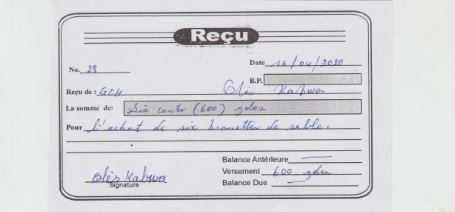 Reçu
No. 28 Date 16/04/2020
B.P.
Reçu de : GCH Blès Kabwa
La somme de: Six cents (600) gdes
Pour l'achat de six brouettes de sable.
Balance Antérieure
Versement 600 gdes
Balance Due
Blès Kabwa
Signature